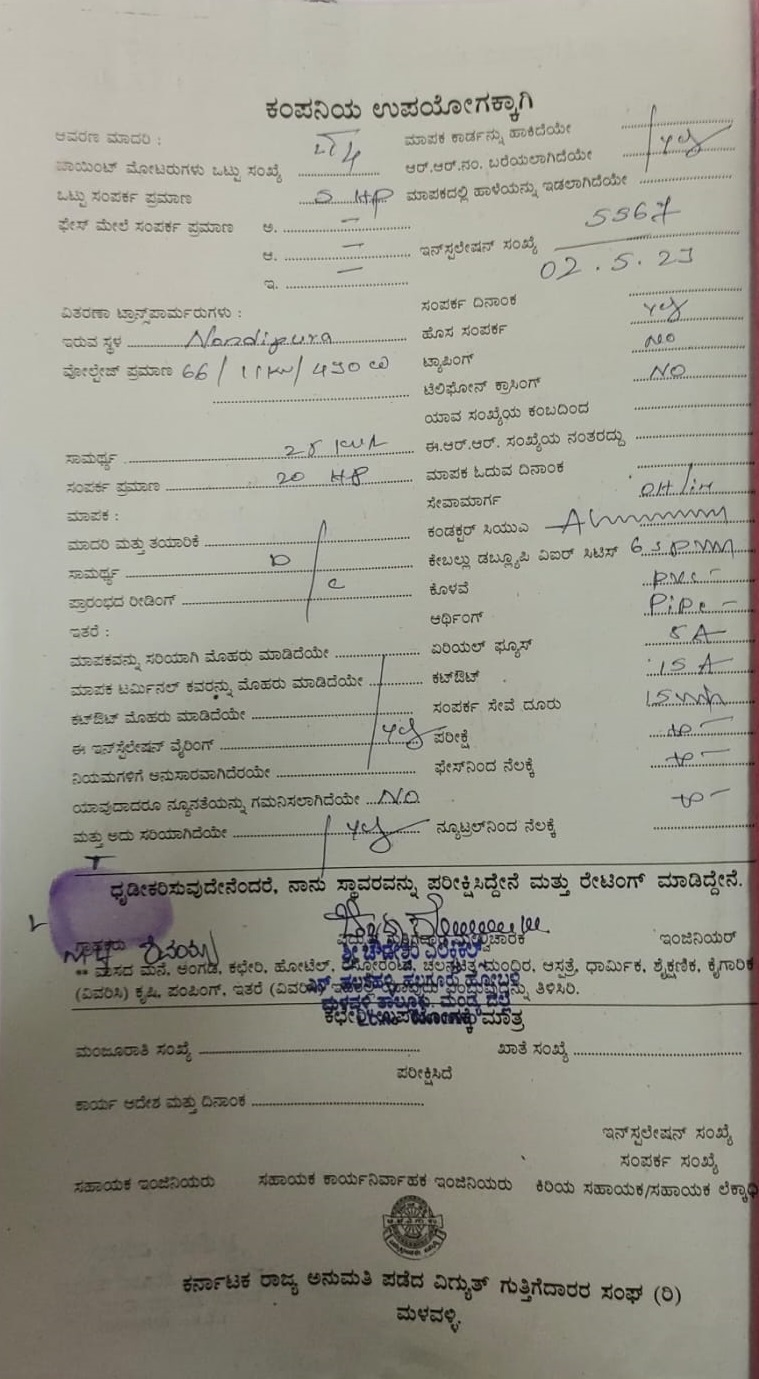 ಕಂಪನಿಯ ಉಪಯೋಗಕ್ಕಾಗಿ
ಆವರಣ ಮಾದರಿ :
ಜಾಯಿಂಟ್ ಮೋಟರುಗಳು ಒಟ್ಟು ಸಂಖ್ಯೆ
ಒಟ್ಟು ಸಂಪರ್ಕ ಪ್ರಮಾಣ 5 HP
ಫೇಸ್ ಮೇಲೆ ಸಂಪರ್ಕ ಪ್ರಮಾಣ ಅ. —
ಆ. —
ಇ. —
ವಿತರಣಾ ಟ್ರಾನ್ಸ್‌ಪಾರ್ಮರುಗಳು :
ಇರುವ ಸ್ಥಳ Nandipura
ವೋಲ್ಟೇಜ್ ಪ್ರಮಾಣ 66 / 11KV /
ಸಾಮರ್ಥ್ಯ 25 KVA
ಸಂಪರ್ಕ ಪ್ರಮಾಣ 20 HP
ಮಾಪಕ :
ಮಾದರಿ ಮತ್ತು ತಯಾರಿಕೆ
ಸಾಮರ್ಥ್ಯ D
ಪ್ರಾರಂಭದ ರೀಡಿಂಗ್ C
ಇತರೆ :
ಮಾಪಕವನ್ನು ಸರಿಯಾಗಿ ಮೊಹರು ಮಾಡಿದೆಯೇ
ಮಾಪಕ ಟರ್ಮಿನಲ್ ಕವರನ್ನು ಮೊಹರು ಮಾಡಿದೆಯೇ
ಕಟ್‌ಔಟ್ ಮೊಹರು ಮಾಡಿದೆಯೇ
ಈ ಇನ್‌ಸ್ಟೆಲೇಷನ್ ವೈರಿಂಗ್ yes
ನಿಯಮಗಳಿಗೆ ಅನುಸಾರವಾಗಿದೆರಯೇ
ಯಾವುದಾದರೂ ನ್ಯೂನತೆಯನ್ನು ಗಮನಿಸಲಾಗಿದೆಯೇ NO
ಮತ್ತು ಅದು ಸರಿಯಾಗಿದೆಯೇ yes
ಮಾಪಕ ಕಾರ್ಡನ್ನು ಹಾಕಿದೆಯೇ
ಆರ್.ಆರ್.ನಂ. ಬರೆಯಲಾಗಿದೆಯೇ yes
ಮಾಪಕದಲ್ಲಿ ಹಾಳೆಯನ್ನು ಇಡಲಾಗಿದೆಯೇ
ಇನ್‌ಸ್ಪಲೇಷನ್ ಸಂಖ್ಯೆ 5567
02.5.23
ಸಂಪರ್ಕ ದಿನಾಂಕ
ಹೊಸ ಸಂಪರ್ಕ yes
ಟ್ಯಾಪಿಂಗ್ NO
ಟೆಲಿಫೋನ್ ಕ್ರಾಸಿಂಗ್ NO
ಯಾವ ಸಂಖ್ಯೆಯ ಕಂಬದಿಂದ
ಈ.ಆರ್.ಆರ್. ಸಂಖ್ಯೆಯ ನಂತರದ್ದು
ಮಾಪಕ ಓದುವ ದಿನಾಂಕ
ಸೇವಾಮಾರ್ಗ OH/
ಕಂಡಕ್ಟರ್ ಸಿಯುಎ
ಕೇಬಲ್ಲು ಡಬ್ಲ್ಯೂಪಿ ವಿಐರ್ ಸಿಟಿಸ್
ಕೊಳವೆ PVC -
ಆರ್ಥಿಂಗ್ Pipe -
ಏರಿಯಲ್ ಫ್ಯೂಸ್ 5 A
ಕಟ್‌ಔಟ್ 15 A
ಸಂಪರ್ಕ ಸೇವೆ ದೂರು
ಪರೀಕ್ಷೆ
ಫೇಸ್‌ನಿಂದ ನೆಲಕ್ಕೆ
ನ್ಯೂಟ್ರಲ್‌ನಿಂದ ನೆಲಕ್ಕೆ
ಧೃಡೀಕರಿಸುವುದೇನೆಂದರೆ, ನಾನು ಸ್ಥಾವರವನ್ನು ಪರೀಕ್ಷಿಸಿದ್ದೇನೆ ಮತ್ತು ರೇಟಿಂಗ್ ಮಾಡಿದ್ದೇನೆ.
ಇಂಜಿನಿಯರ್
** ವಾಸದ ಮನೆ, ಅಂಗಡಿ, ಕಛೇರಿ, ಹೋಟೆಲ್, ಚಲನಚಿತ್ರ ಮಂದಿರ, ಆಸ್ಪತ್ರೆ, ಧಾರ್ಮಿಕ, ಶೈಕ್ಷಣಿಕ, ಕೈಗಾರಿಕೆ
(ವಿವರಿಸಿ) ಕೃಷಿ, ಪಂಪಿಂಗ್, ಇತರೆ ತಿಳಿಸಿರಿ.
ಕಛೇರಿ ಉಪಯೋಗಕ್ಕೆ ಮಾತ್ರ
ಮಂಜೂರಾತಿ ಸಂಖ್ಯೆ ಖಾತೆ ಸಂಖ್ಯೆ
ಪರೀಕ್ಷಿಸಿದೆ
ಕಾರ್ಯ ಆದೇಶ ಮತ್ತು ದಿನಾಂಕ
ಇನ್‌ಸ್ಪಲೇಷನ್ ಸಂಖ್ಯೆ
ಸಂಪರ್ಕ ಸಂಖ್ಯೆ
ಸಹಾಯಕ ಇಂಜಿನಿಯರು ಸಹಾಯಕ ಕಾರ್ಯನಿರ್ವಾಹಕ ಇಂಜಿನಿಯರು ಕಿರಿಯ ಸಹಾಯಕ/ಸಹಾಯಕ
ಕರ್ನಾಟಕ ರಾಜ್ಯ ಅನುಮತಿ ಪಡೆದ ವಿದ್ಯುತ್ ಗುತ್ತಿಗೆದಾರರ ಸಂಘ (ರಿ)
ಮಳವಳ್ಳಿ.